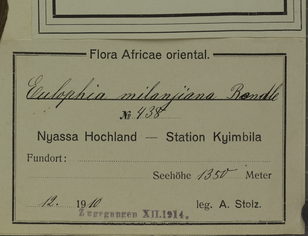 Flora Africae oriental.
Eulophia milanjiana Rendle
№ 438
Nyassa Hochland — Station Kyimbila
Fundort:
Seehöhe 1350 Meter
12. 1910 leg. A. Stolz.
Zugegangen XII.1914.